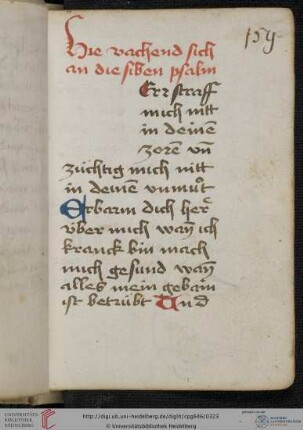 159
Hie vachend sich
an die siben psalm
Err straff
mich nitt
in deinē
zorē vn̄
züchtig mich nitt
in deinē vnmůt
Erbarm dich her
v̈ber mich wan̄ ich
kranck bin mach
mich gesund wan̄
alles mein gebain
ist betrübt Vnd
http://digi.ub.uni-heidelberg.de/diglit/cpg646/0323
© Universitätsbibliothek Heidelberg
UNIVERSITÄTS-
BIBLIOTHEK
HEIDELBERG